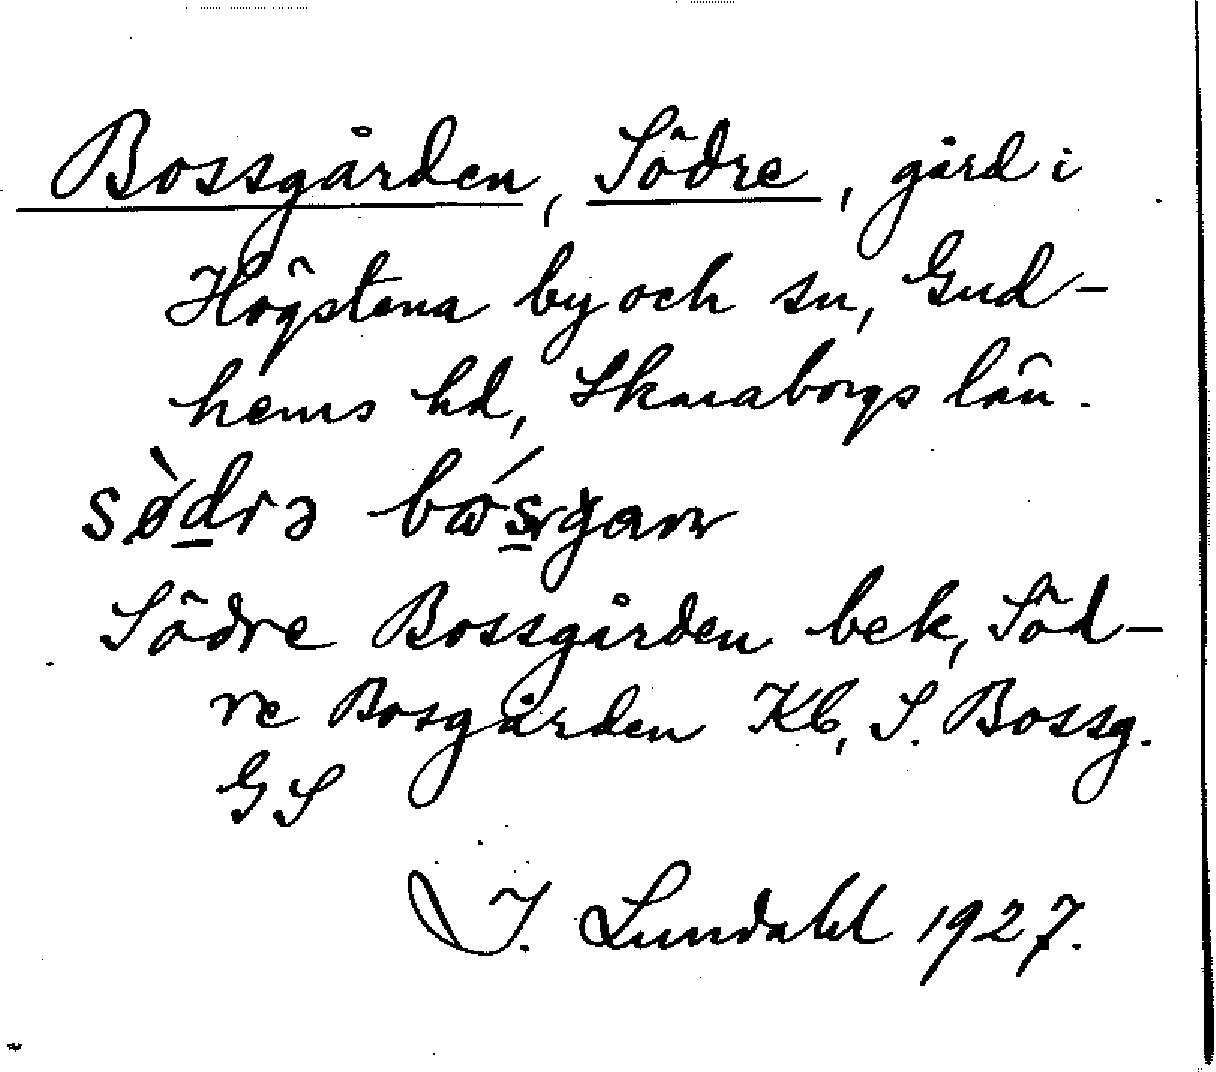 Bossgården, Södre, gård i
Högstena by och sn, Gud-
hems hd, Skaraborgs län.
sø̀drə
Södre Bossgården bek, Söd-
re Bosgården Kb, S. Bossg.
GS
I. Lundahl 1927.